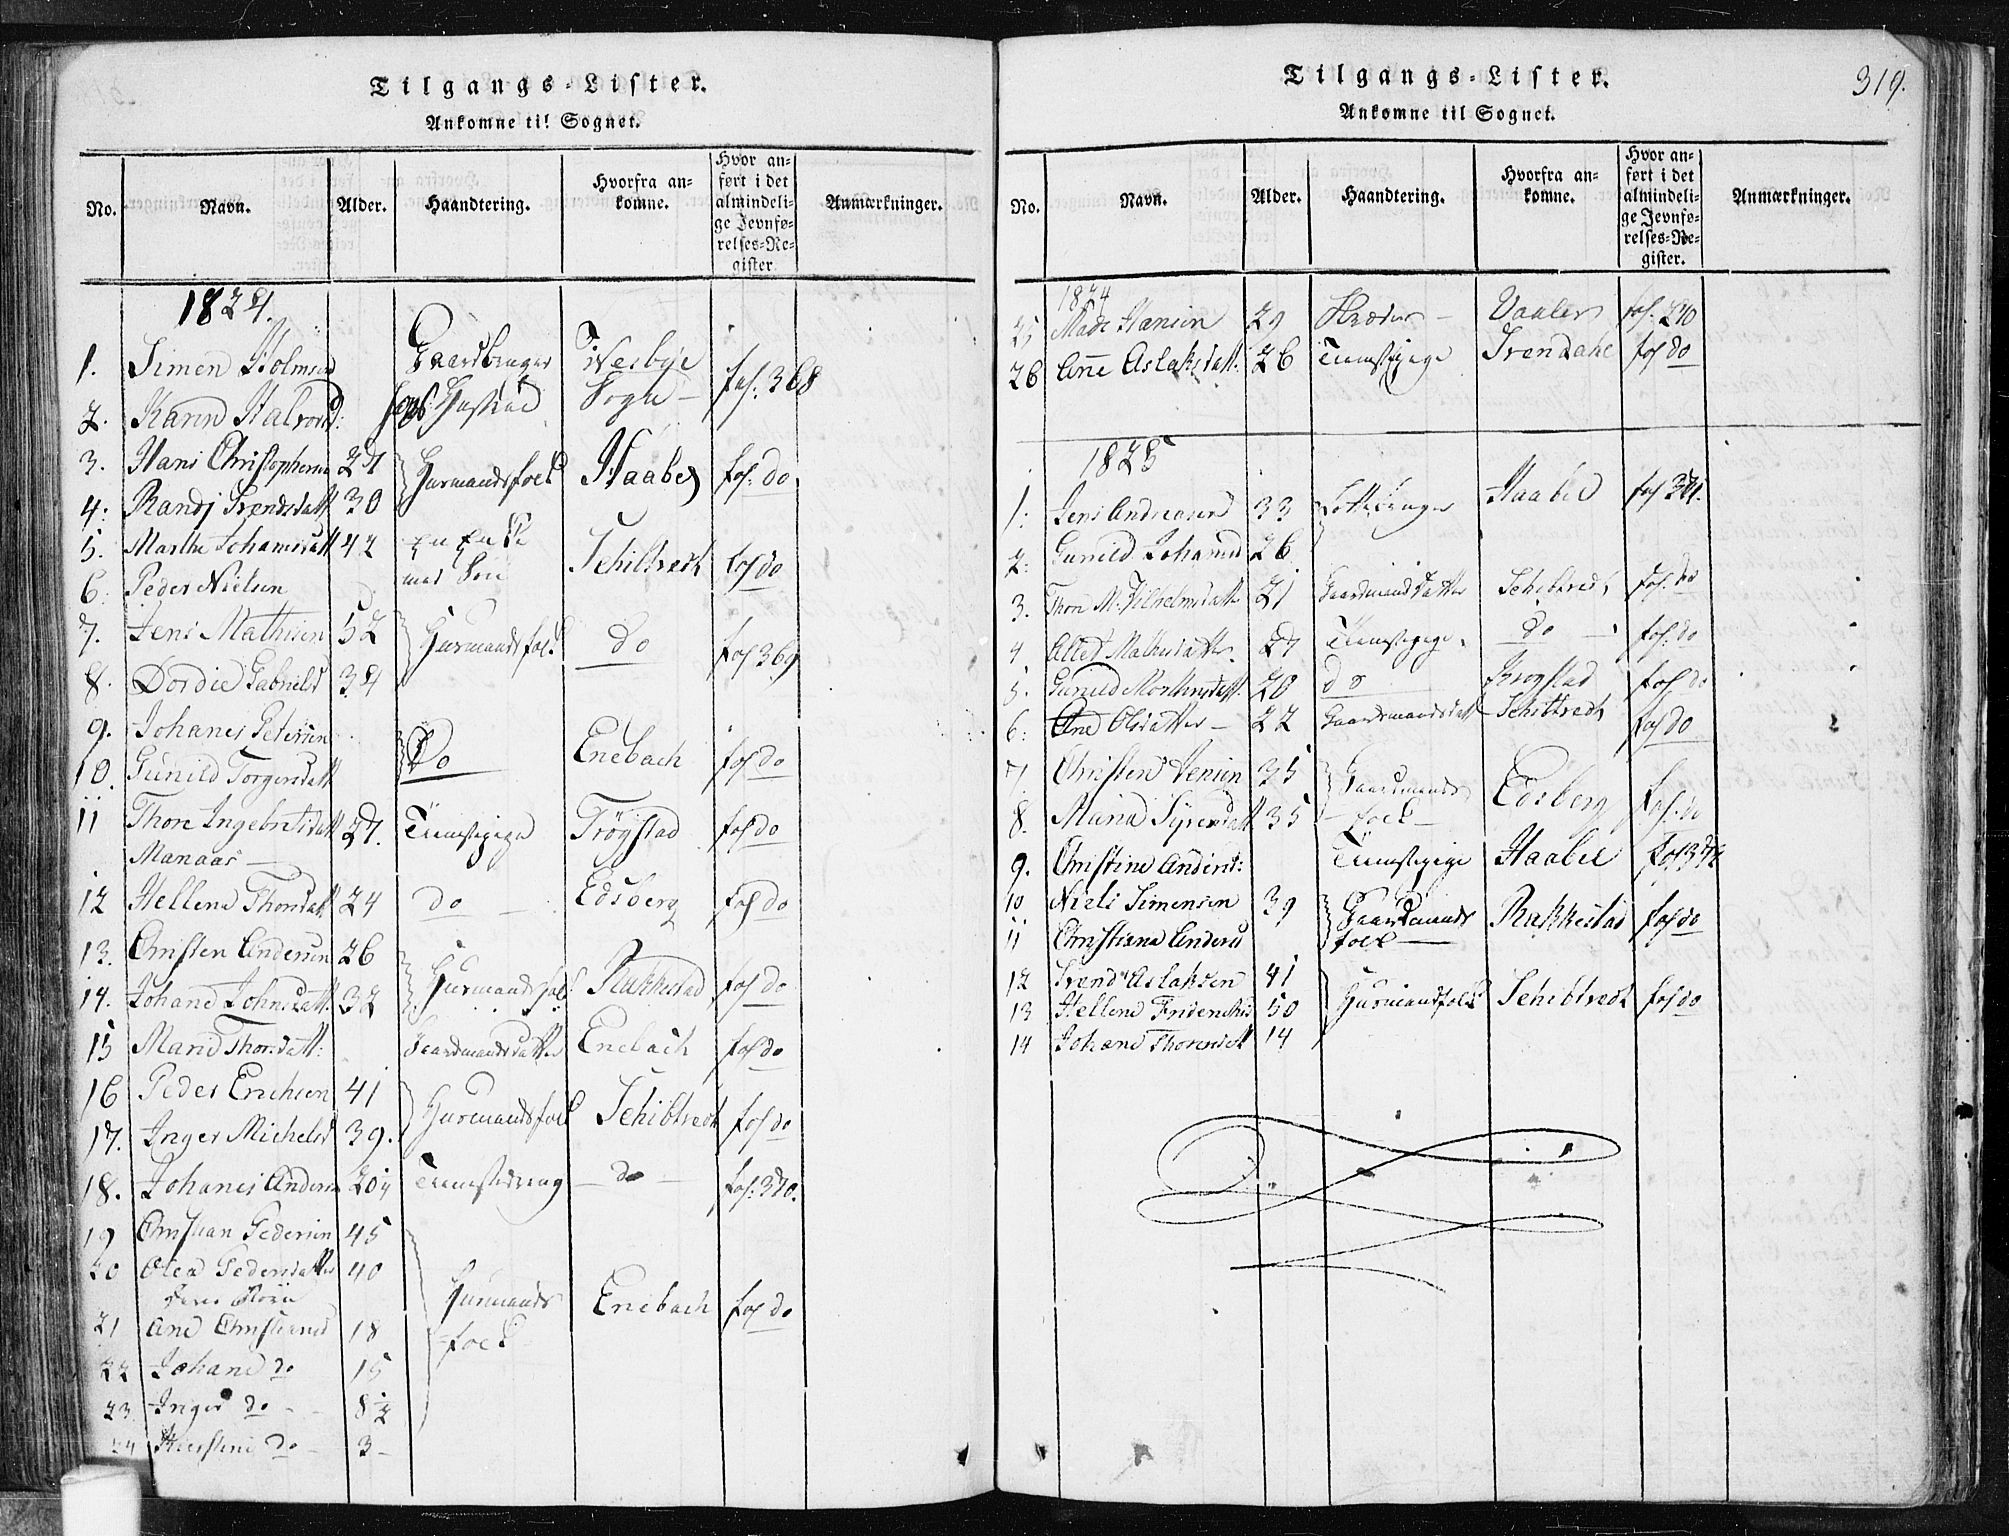 Tilgangs-Lister.
Ankomne til Sognet.
No. Navn. Alder. Haandtering. Hvorfra ankomne. Hvor anført i det almindelige Jevnførelses-Register. Anmærkninger.
1824.
1. Simen Holmsen Gaardbruger Nesbye
2. Karen Halvorsd: Hustrue Sogn fol. 368
3. Hans Christophersen 27 Huusmandsfolk Haabel fol. do
4. Randj Svendsdatt 30
5. Marthe Johansdatt 42 en Enke Schibtvedt fol do
6. Peder Nielsen med Søn
7. Jens Mathisen 52 Huusmandsfolk do fol 369
8. Dordie Gabrielsd 34
9. Johanes Petersen Do Enebach fol do
10. Gunild Torgersdatt
11 Thore Ingebretsdatt 27. Tienestepige Trögstad fol do
Manaas
12 Hellene Thorsdatt 24 do Edsberg fol do
13. Christen Andersen 26 Huusmandsfolk Rakkestad fol do
14. Johane Johnsdatt. 32
15 Maren Thorsdatt: Gaardmandsdatter Enebach fol do
16 Peder Erichsen 41 Huusmandsfolk Schibtvedt fol do
17. Inger Michelsd 39.
18. Johanes Andersen 20 Tienestedreng do fol. 370.
19 Christian Pedersen 45
20 Olea Pedersdatter 40 Huusmands Enebach fol do
deres Børn
21 Ane Christiansd 18 folk
22 Johane do 15
23 Inger do 8½
24 Kierstine do 3
Tilgangs-Lister.
319.
Ankomne til Sognet.
No. Navn. Alder. Haandtering. Hvorfra ankomne. Hvor anført i det almindelige Jevnførelses-Register. Anmærkninger.
1824
25 Mads Hansen 29 Vaaler fol.
26 Ane Aslaksdatt. 26 Tienestepige fol do
1825
1. Jens Andreasen 33 Haabel fol 371.
2. Gunild Johansd 26
3. Thore M. Vilhelmsdatter 21 Gaardmandsdatter Schibtvedt fol. do
4 Mathisdatter 27 Tienestepige. do fol. do
5. Gunild Morthensdatt. 20 do Krogstad fol do
6. Ane Olsdatter 22 Gaardmandsdatt Schibtvedt fol do
7. Christen Jensen 35 Gaardmands Edsberg fol. do
8. 35 folk
9. Christine Andersd: Tienestepige Haabel fol 372
10 Niels Simensen 39 Gaardmands Rakkestad fol do
11 Christiane Andersd folk
12 Svend Aslaksen 41 Huusmandsfolk Schibtvedt fol do
13 Hellene Friderichsd 50
14 Johane Thoresdatt 14